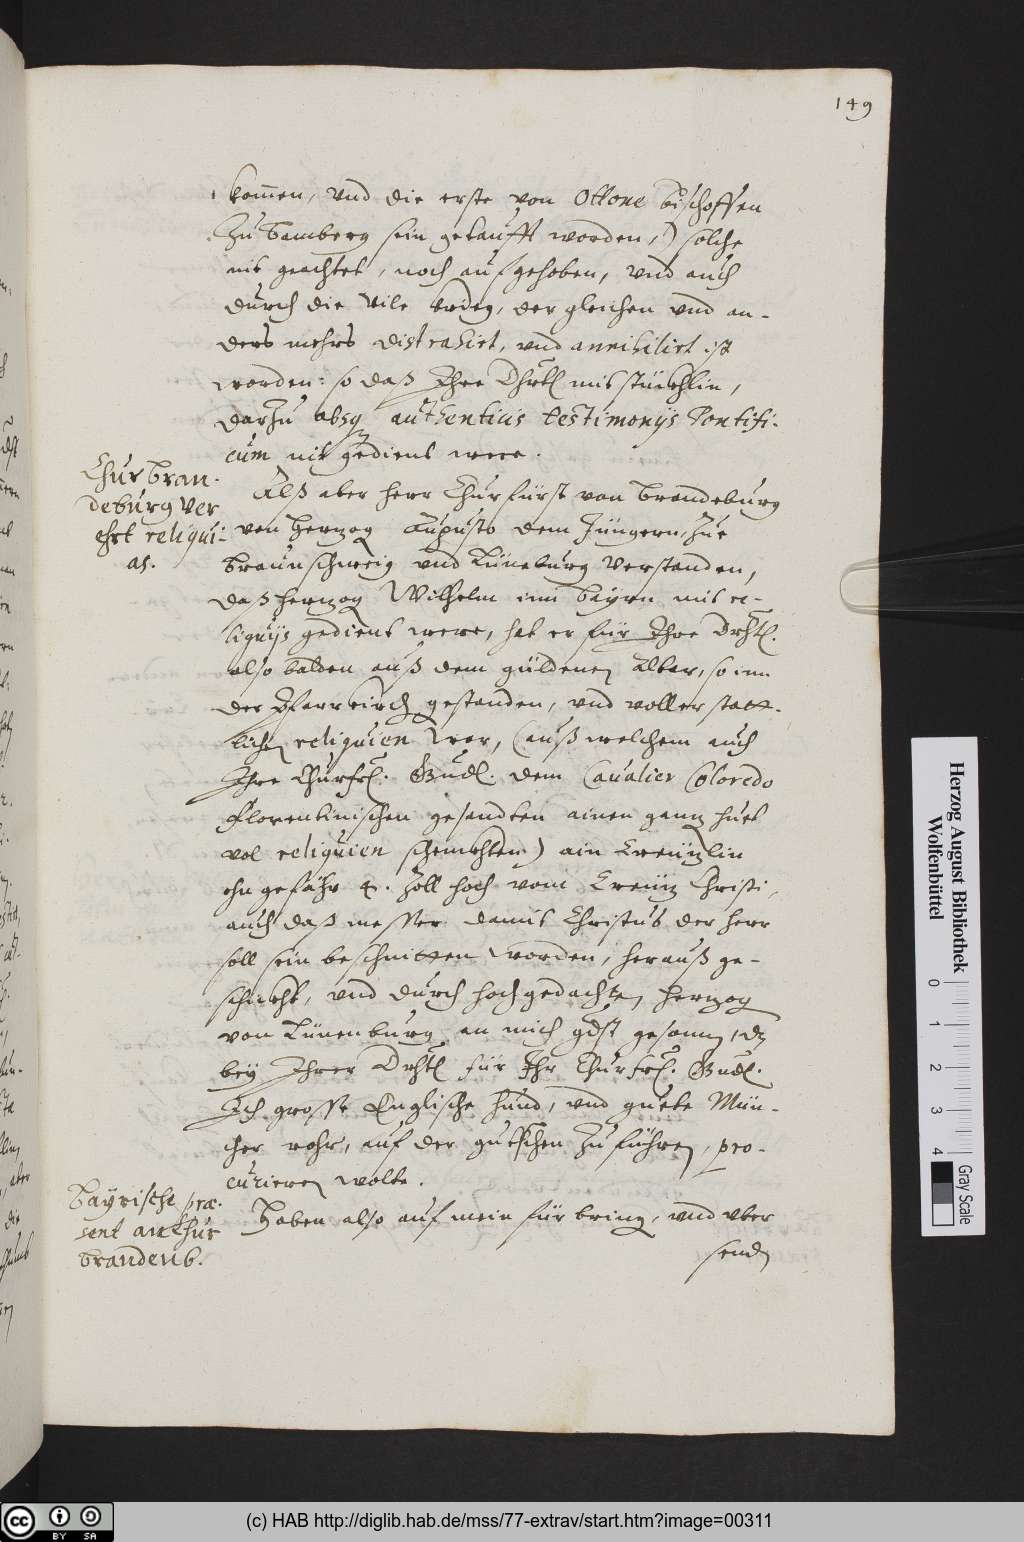 149
kommen, vnd die erste von Ottone Bischoffen
zu Bamberg sein getaufft worden,) solche
nit geachtet, noch aufgehoben, vnd auch
durch die vile der gleichen vnd an-
ders mehrs distrahirt, vnd annihilirt ist
worden: so daß Ihre Drhtl mit stückhlin,
darzu absq authenticis testimonijs Pontifi-
cum nit gedient were.
Churbran-
deburg ver
ehrt reliqui-
as.
Alß aber herr Churfürst von Brandeburg
von Herzog Augusto dem Jüngern, zue
Braunschweig vnd Lüneburg verstanden,
daß herzog Wilhelm inn Bayrn mit re-
liquijs gedient were, hat er für Ihre Drhtl.
also balden auß dem güldenen Altar, so inn
der Pfarrkirch gestanden, vnd voller statt-
lichen reliquien war, (auß welchem auch
Ihre Churfrl. Gnadl. dem Caualier Coloredo
Florentinischen gesandten ainen ganz huet
vol reliquien schenckhten) ain Creüzlin
ohngefähr 4. Zoll hoch vom Creüz Christi,
auch daß messer damit Christus der herr
soll sein beschnitten worden, herauß ge-
schickht, vnd durch hochgedachten herzog
von Lünenburg an mich gdst gesonnen, dz
bey Ihrer Drhtl für Ihr Churfrl. Gnadl.
Ich grosse Englische hund, vnd guete Mün-
cher rohr, auf der gutschen zu führen, pro-
curieren wolte.
Bayrische præ-
sent an Chur
brandenb.
Haben also auf mein fürbring, vnd vber
send
Herzog August Bibliothek
Wolfenbüttel
0 1 2 3 4
Gray Scale
CC BY SA
(c) HAB http://diglib.hab.de/mss/77-extrav/start.htm?image=00311